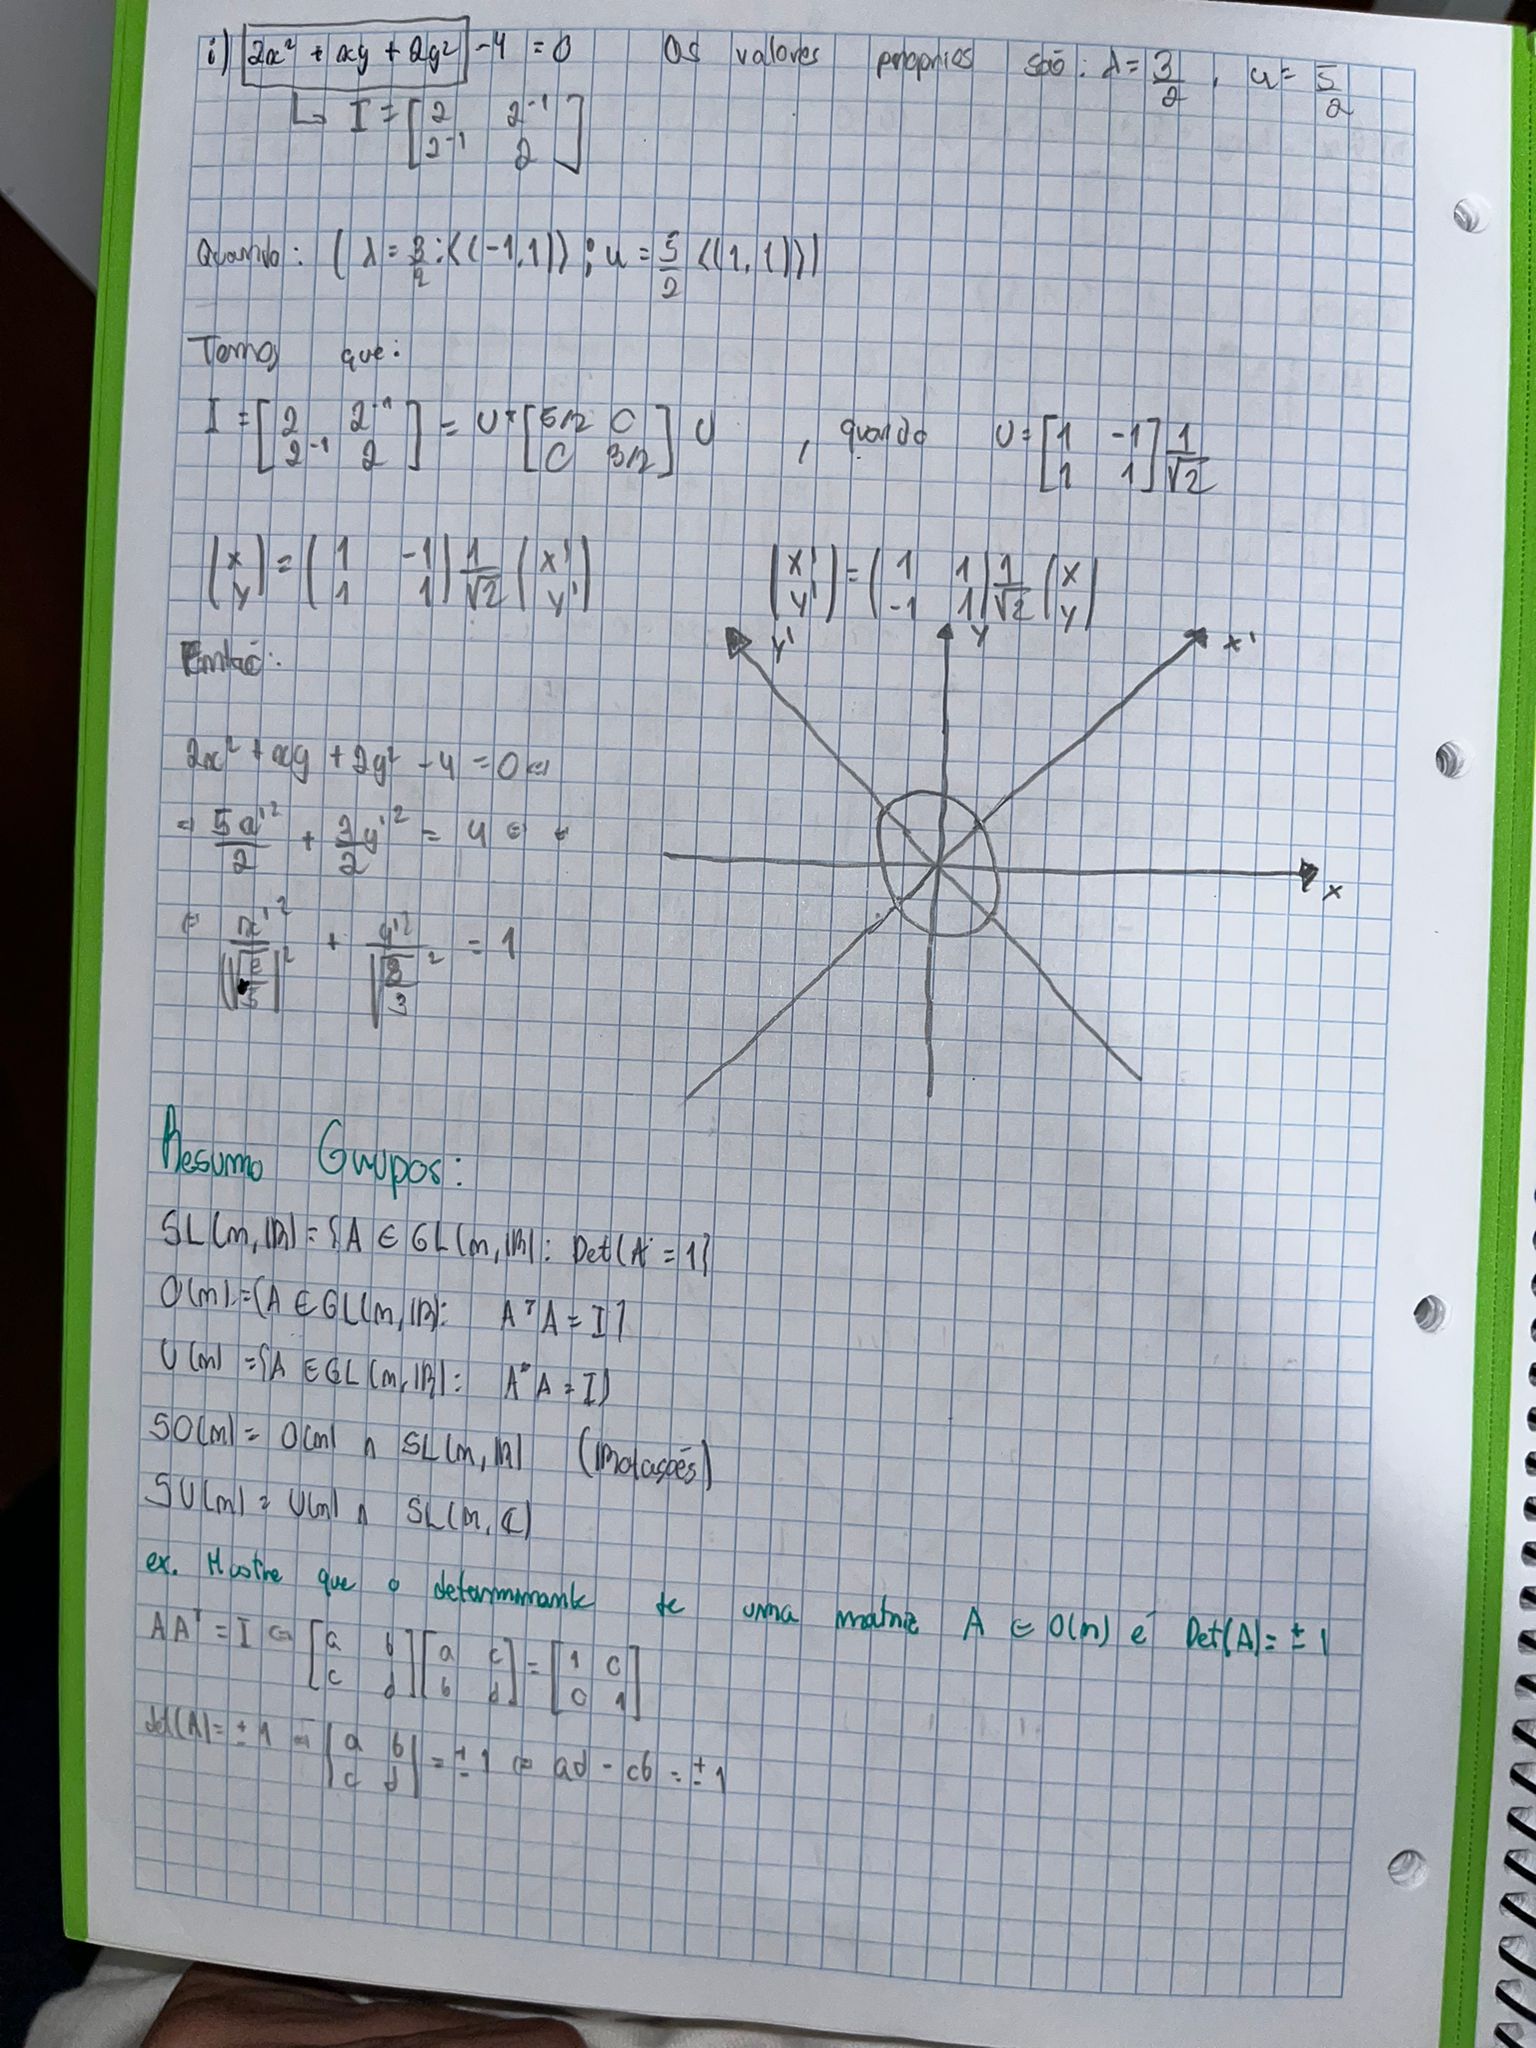 i) 2x² + xy + 2y² - 4 = 0 Os valores proprios são: λ = 3/2, u = 5/2
↳ I = [2 2⁻¹; 2⁻¹ 2]
Quando: (λ = 3/2: ⟨(-1,1)⟩; u = 5/2 ⟨(1,1)⟩)
Temos que:
I = [2 2⁻¹; 2⁻¹ 2] = U* [5/2 0; 0 3/2] U, quando U = [1 -1; 1 1] 1/√2
(x; y) = (1 -1; 1 1) 1/√2 (x'; y') (x'; y') = (1 1; -1 1) 1/√2 (x; y)
Então:
y' y x'
2x² + xy + 2y² - 4 = 0 ⇔
⇔ 5x'²/2 + 3y'²/2 = 4 ⇔
x
⇔ x'²/(√(8/5))² + y'²/(√(8/3))² = 1
Resumo Grupos:
SL(n, IR) = {A ∈ GL(n, IR): Det(A) = 1}
O(n) = {A ∈ GL(n, IR): AᵀA = I}
U(n) = {A ∈ GL(n, IR): A*A = I}
SO(n) = O(n) ∩ SL(n, IR) (Rotações)
SU(n) = U(n) ∩ SL(n, C)
ex. Mostre que o determinante de uma matriz A ∈ O(n) é Det(A) = ± 1
AAᵀ = I ⇔ [a b; c d][a c; b d] = [1 0; 0 1]
det(A) = ± 1 ⇔ |a b; c d| = ± 1 ⇔ ad - cb = ± 1